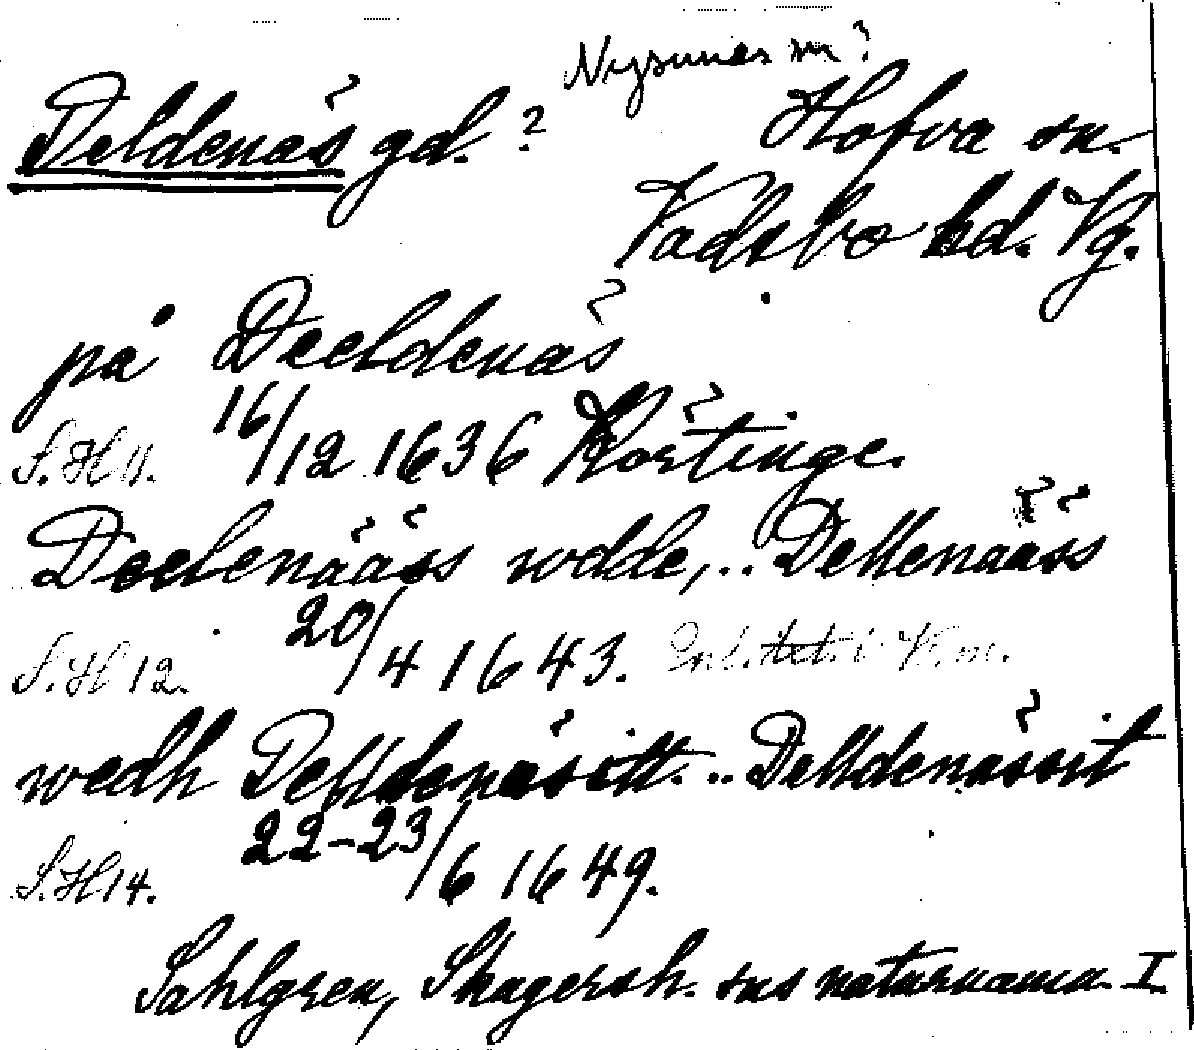 Nysunäs sn?
Deldenäs gd.? Hofva sn.
Vadsbo hd. Vg.
på Deeldenäs
S.H 11. 16/12 1636 Körtinge.
Deelenääss wdde, .. Dellenääss
S.H 12. 20/4 1643.
wedh Delldenäsitt. .. Delldenässit
S.H 14. 22-23/6 1649.
Sahlgren, Skagersh. sns naturnamn I